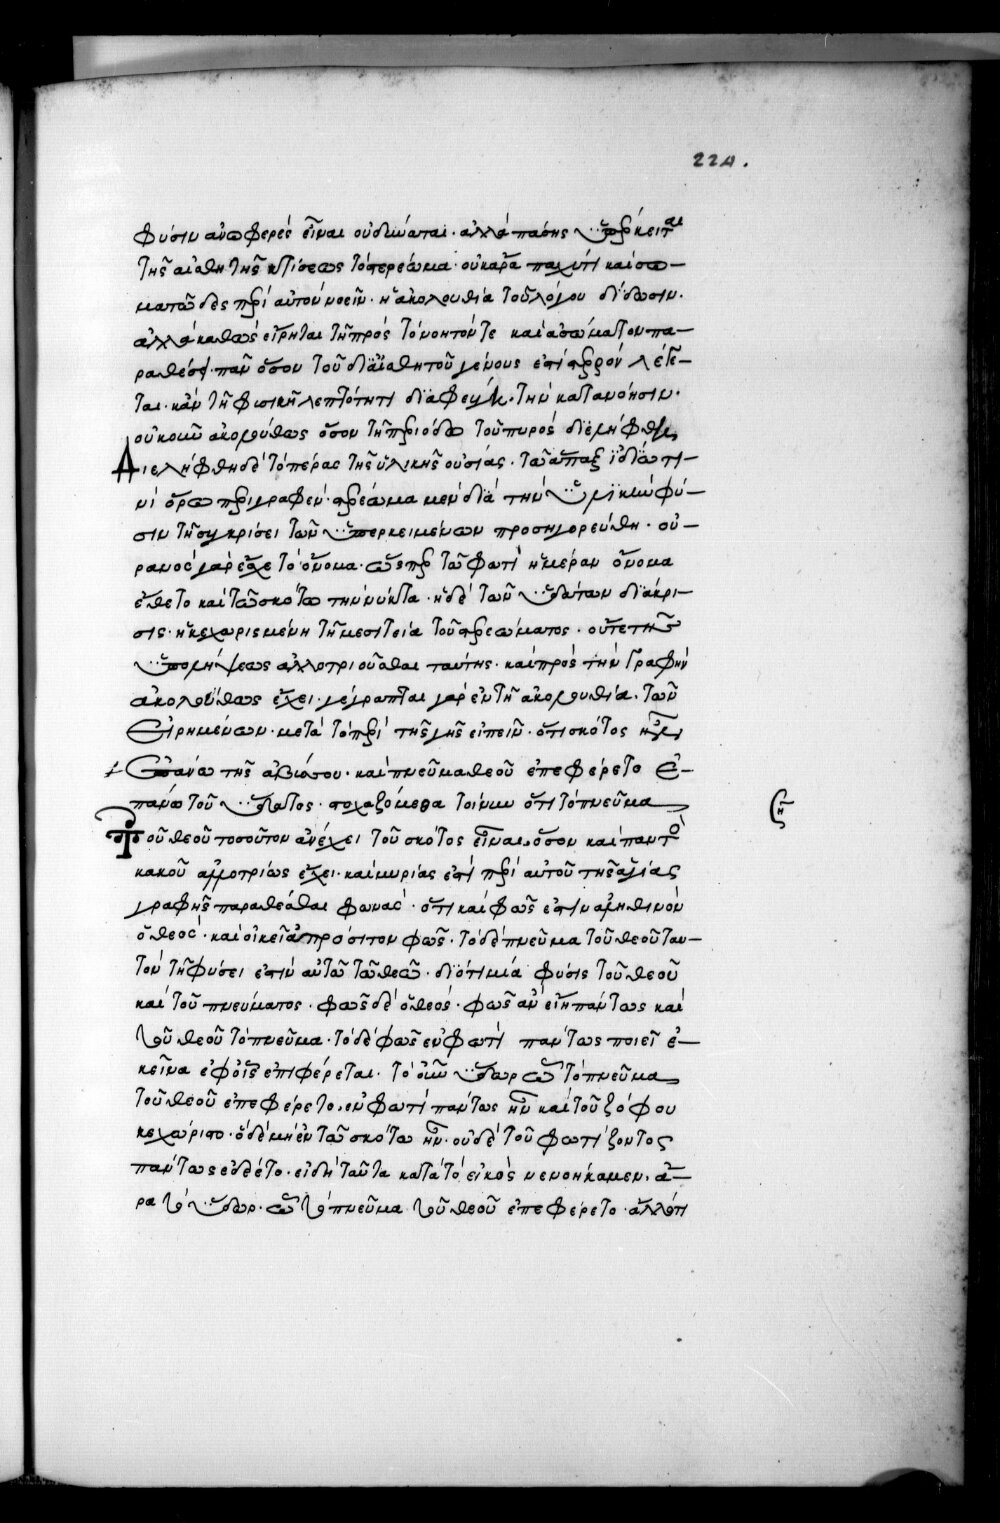 224.
φύσιν ἀνωφερὲς εἶναι οὐ δύναται· ἀλλὰ πάσης ὑπέρκειται
τῆς αἰσθητῆς κτίσεως τὸ στερέωμα· οὐκ ἄρα παχύ τι καὶ σω–
ματῶδες περὶ αὐτὸν νοεῖν· ἡ ἀκολουθία τοῦ λόγου δίδωσιν.
ἀλλὰ καθὼς εἴρηται τῇ πρὸς τὸ νοητόν τε καὶ ἀσώματον πα–
ραθέσει· πᾶν ὅσον τοῦ διαἰσθητοῦ γένους ἐστὶ στερρὸν λέγε–
ται· κἂν τῇ φυσικῇ λεπτότητι διαφεύγῃ· τὴν κατανόησιν·
οὐκοῦν ἀκολούθως ὅσον τῇ περιόδω τοῦ πυρὸς διελήφθη
Διελήφθη δὲ τὸ πέρας τῆς ὑλικῆς οὐσίας· τῶ ἅπαξ ἰδίω τι–
νὶ ὅρω περιγραφέν· στερέωμα μὲν διὰ τὴν ὑλικὴν φύ–
σιν τῇ συγκρίσει τῶν ὑπερκειμένων προσηγορεύθη· οὐ–
ρανὸς γὰρ ἔσχε τὸ ὄνομα· ὥσπερ τῶ φωτὶ ἡμέραν ὄνομα
ἔθετο καὶ τῶ σκότω τὴν νύκτα· ἡ δὲ τῶν ὑδάτων διάκρι–
σις· ἡ κεχωρισμένη τῇ μεσιτεία τοῦ στερεώματος· οὔτε τῆς
ὑπολήψεως ἀλλοτριοῦσθαι ταύτης· καὶ πρὸς τὴν Γραφὴν
ἀκολούθως ἔχει· γέγραπται γὰρ ἐν τῇ ἀκολουθία· τῶν
Εἰρημένων· μετὰ τὸ περὶ τῆς γῆς εἰπεῖν· ὅτι σκότος ἦν
Ἐπάνω τῆς ἀβύσσου· καὶ πνεῦμα θεοῦ ἐπεφέρετο ἐ–
πάνω τοῦ ὕδατος· στοχαζόμεθα τοίνυν ὅτι τὸ πνεῦμα
Τοῦ θεοῦ τοσοῦτον ἀπέχει τοῦ σκότος εἶναι, ὅσον καὶ παντὸ
κακοῦ ἀλλοτρίως ἔχει· καὶ μυρίας ἐστὶ περὶ αὐτοῦ τῆς ἁγίας
γραφῆς παραθέσθαι φωνάς· ὅτι καὶ φῶς ἐστιν ἀληθινὸν
ὁ θεός· καὶ οἰκεῖ ἀπρόσιτον φῶς· τὸ δὲ πνεῦμα τοῦ θεοῦ ταυ–
τὸν τῇ φύσει ἐστὶν αὐτῶ τῶ θεῶ· διότι μία φύσις τοῦ θεοῦ
καὶ τοῦ πνεύματος· φῶς δὲ ὁ θεός· φῶς ἂν εἴη πάντως καὶ
τοῦ θεοῦ τὸ πνεῦμα· τὸ δὲ φῶς ἐν φωτὶ πάντως ποιεῖ ἐ–
κεῖνα ἐφ' οἷς ἐπιφέρεται· τὸ οὖν ὕδωρ ὧ τὸ πνεῦμα
τοῦ θεοῦ ἐπεφέρετο, ἐν φωτὶ πάντως ἦν καὶ τοῦ ζόφου
κεχώριστο· ὁ δὲ μὴ ἐν τῶ σκότω ἦν· οὐδὲ τοῦ φωτίζοντος
πάντως ἐδέετο· εἰ δὴ ταῦτα κατὰ τὸ εἰκὸς νενοήκαμεν, ἆ–
ρα τὸ ὕδωρ· ὧ τὸ πνεῦμα τοῦ θεοῦ ἐπεφέρετο· ἄλλό τι